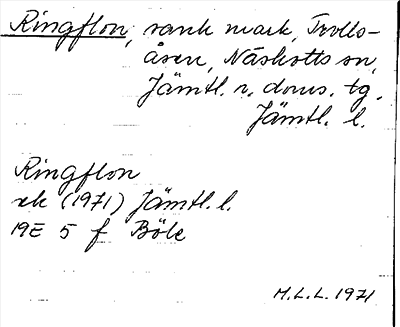 Ringflon, sank mark, Trolls-
åsen, Näskotts sn,
Jämtl. n. doms. tg.
Jämtl. l.
Ringflon
ek (1971) Jämtl. l.
19E 5 f Böle
M.L.L. 1971